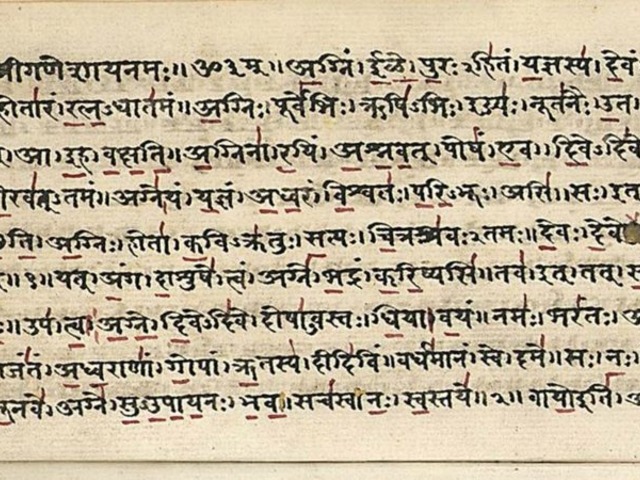 श्रीगणेशायनमः॥ॐ३म्॥अ॒ग्निं।ई॒ळे॒।पु॒रःऽहि॑तं।य॒ज्ञस्य॑।दे॒वं
होता॑रं।र॒त्न॒ऽधात॑मं॥अ॒ग्निः।पूर्वे॑भिः।ऋषि॑ऽभिः।ईड्यः॑।नूत॑नैः।उ॒त
आ।इ॒ह।व॒क्ष॒ति॒॥अ॒ग्निना॑।र॒यिं।अ॒श्न॒व॒त्।पोषं॑।ए॒व।दि॒वेऽदि॑वे
वी॒रव॑त्ऽतमं॥अग्ने॑।यं।य॒ज्ञं।अ॒ध्व॒रं।वि॒श्वतः॑।प॒रि॒ऽभूः।असि॑॥सः।इत्
अ॒ग्निः।होता॑।क॒विऽक्र॑तुः।स॒त्यः।चि॒त्रश्र॑वःऽतमः॥दे॒वः।दे॒वे
॥१॥यत्।अं॒ग।दा॒शुषे॑।त्वं।अग्ने॑।भ॒द्रं।क॒रि॒ष्यसि॑॥तव॑।इत्।तत्।स
उप॑।त्वा॒।अ॒ग्ने॒।दि॒वेऽदि॑वे।दोषा॑ऽवस्तः।धि॒या।व॒यं॥नमः॑।भरं॑तः
राजं॑तं।अ॒ध्व॒राणां॑।गो॒पां।ऋ॒तस्य॑।दीदि॑विं॥वर्ध॑मानं।स्वे।दमे॑॥सः।नः॒
सू॒नवे॑।अग्ने॑।सु॒ऽउ॒पा॒य॒नः।भ॒व॒॥सच॑स्व।नः॒।स्व॒स्तये॑॥२॥वायो॒इति॑